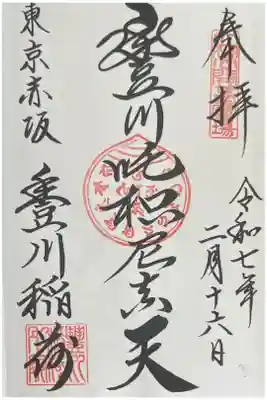 奉拝
令和七年
二月十六日
豐川吒枳尼真天
東京赤坂
豐川稲荷